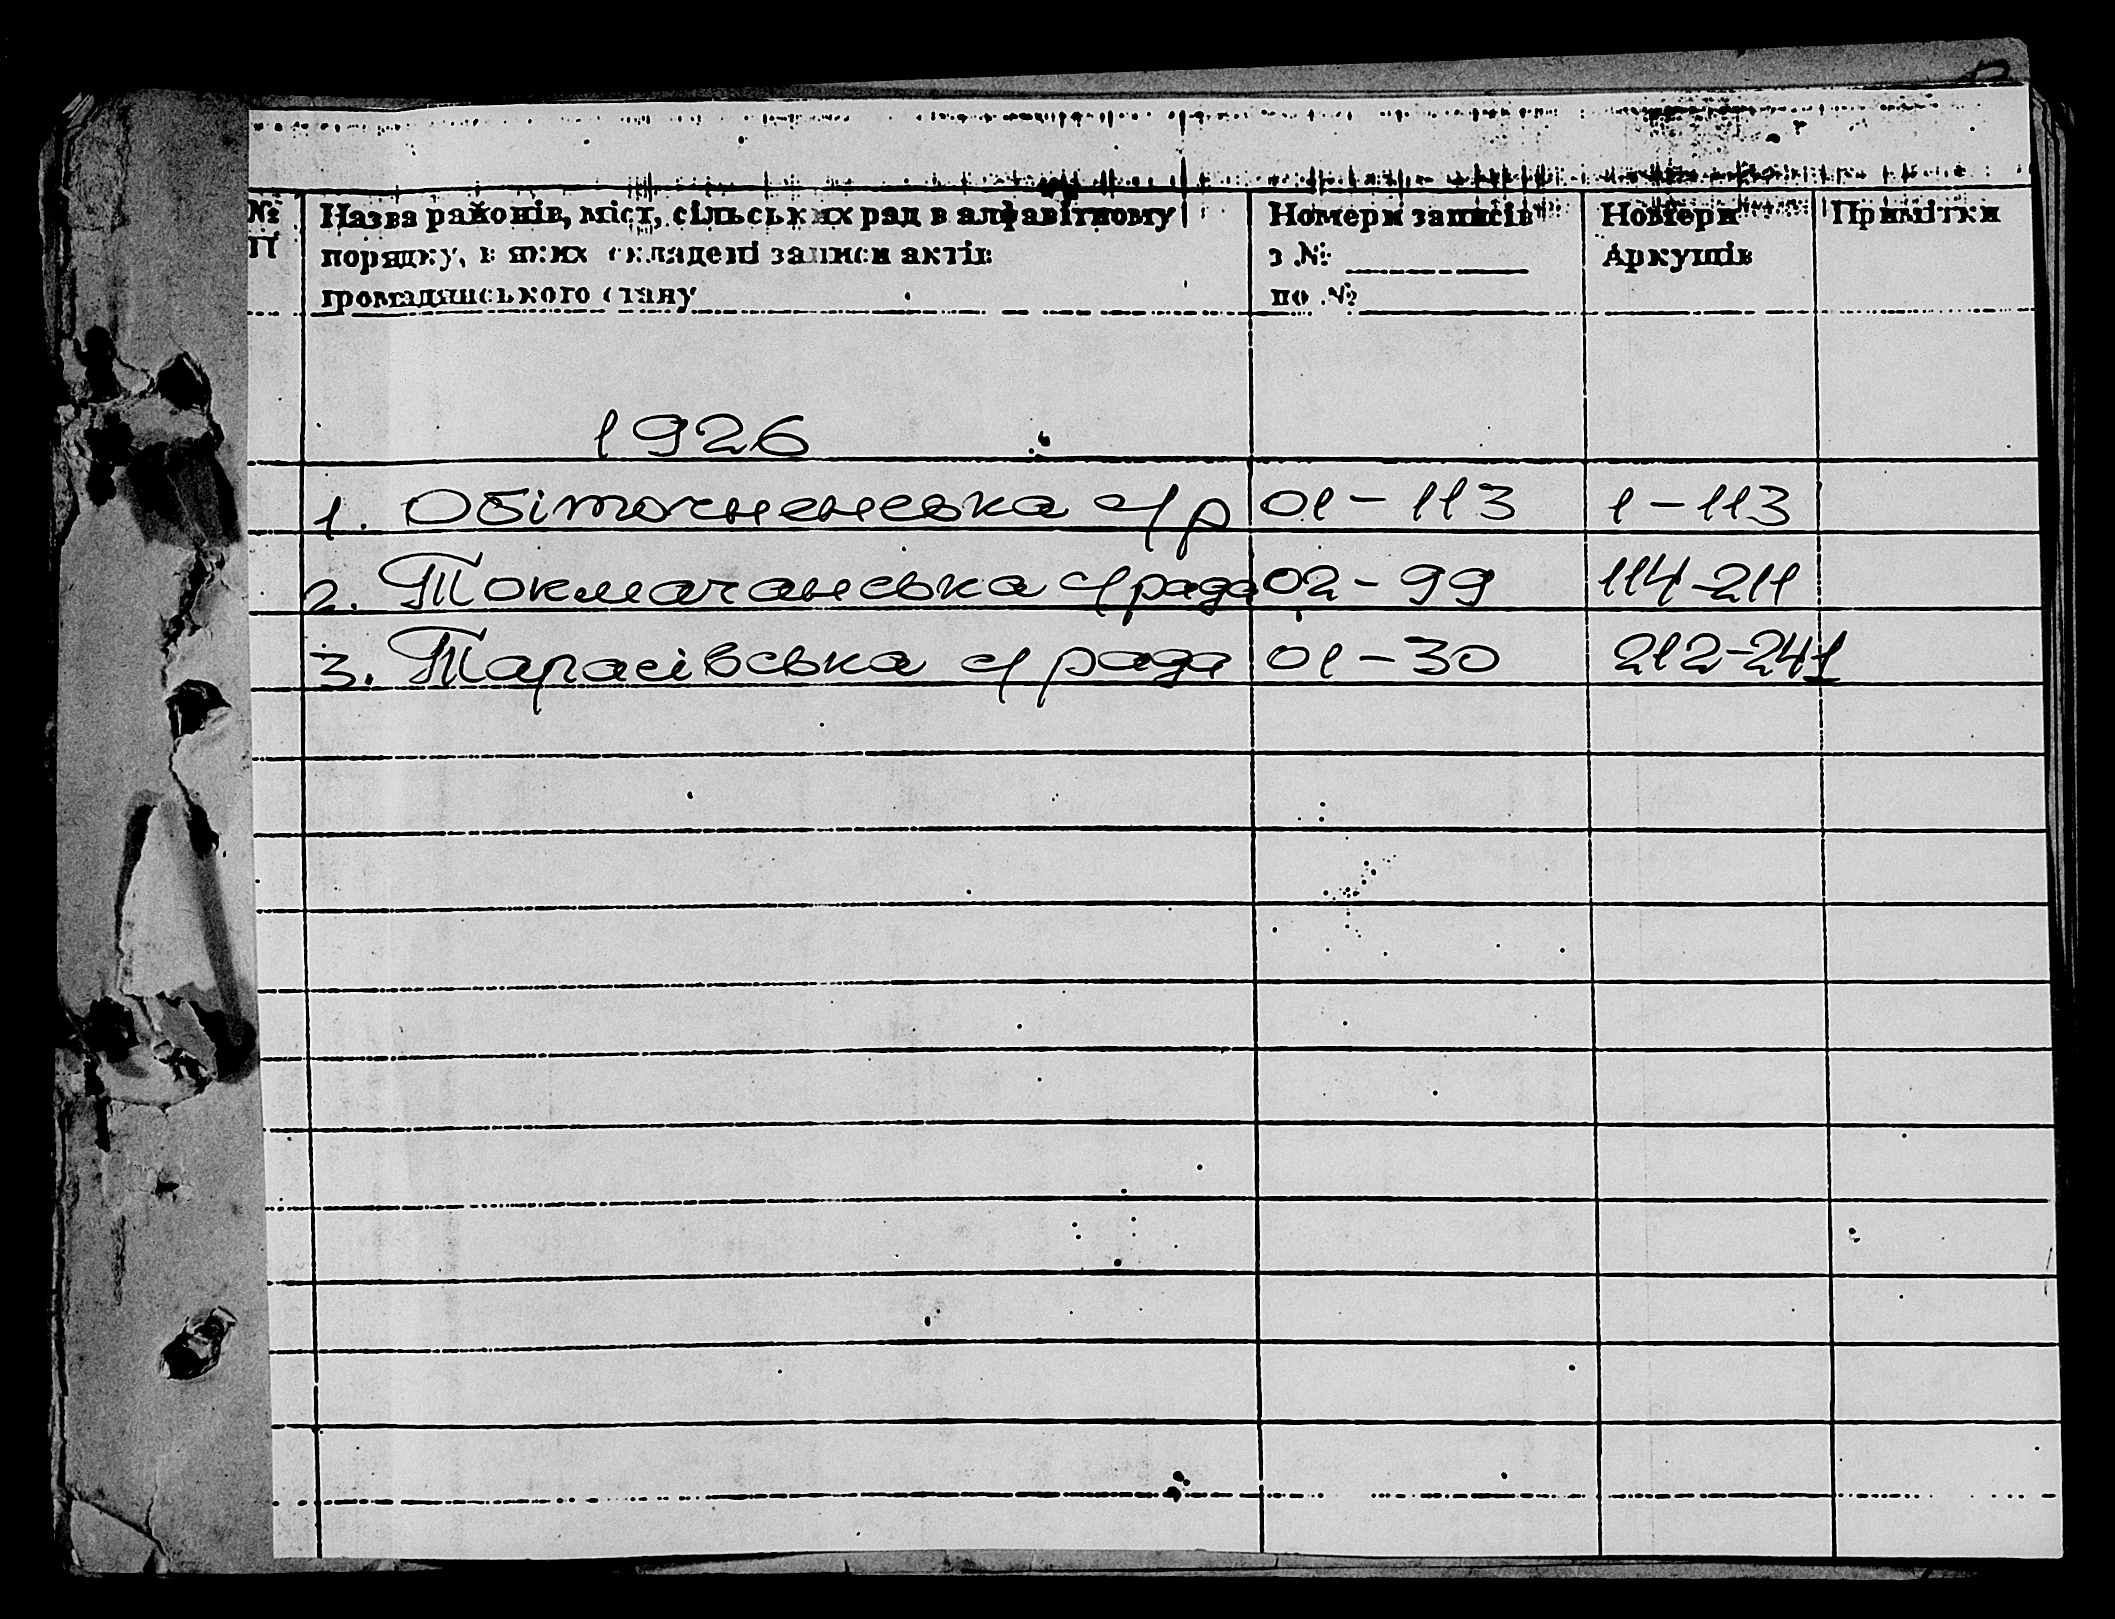 № Назва районів, міст, сільських рад в алфавітному Номери записів Номери Примітки
П порядку, в яких складені записи актів з № Аркушів
громадянського стану по №
1926
1. Обіточненська с/р 01-113 1-113
2. Токмачанська с/рада 02-99 114-211
3. Тарасівська с/рада 01-30 212-241